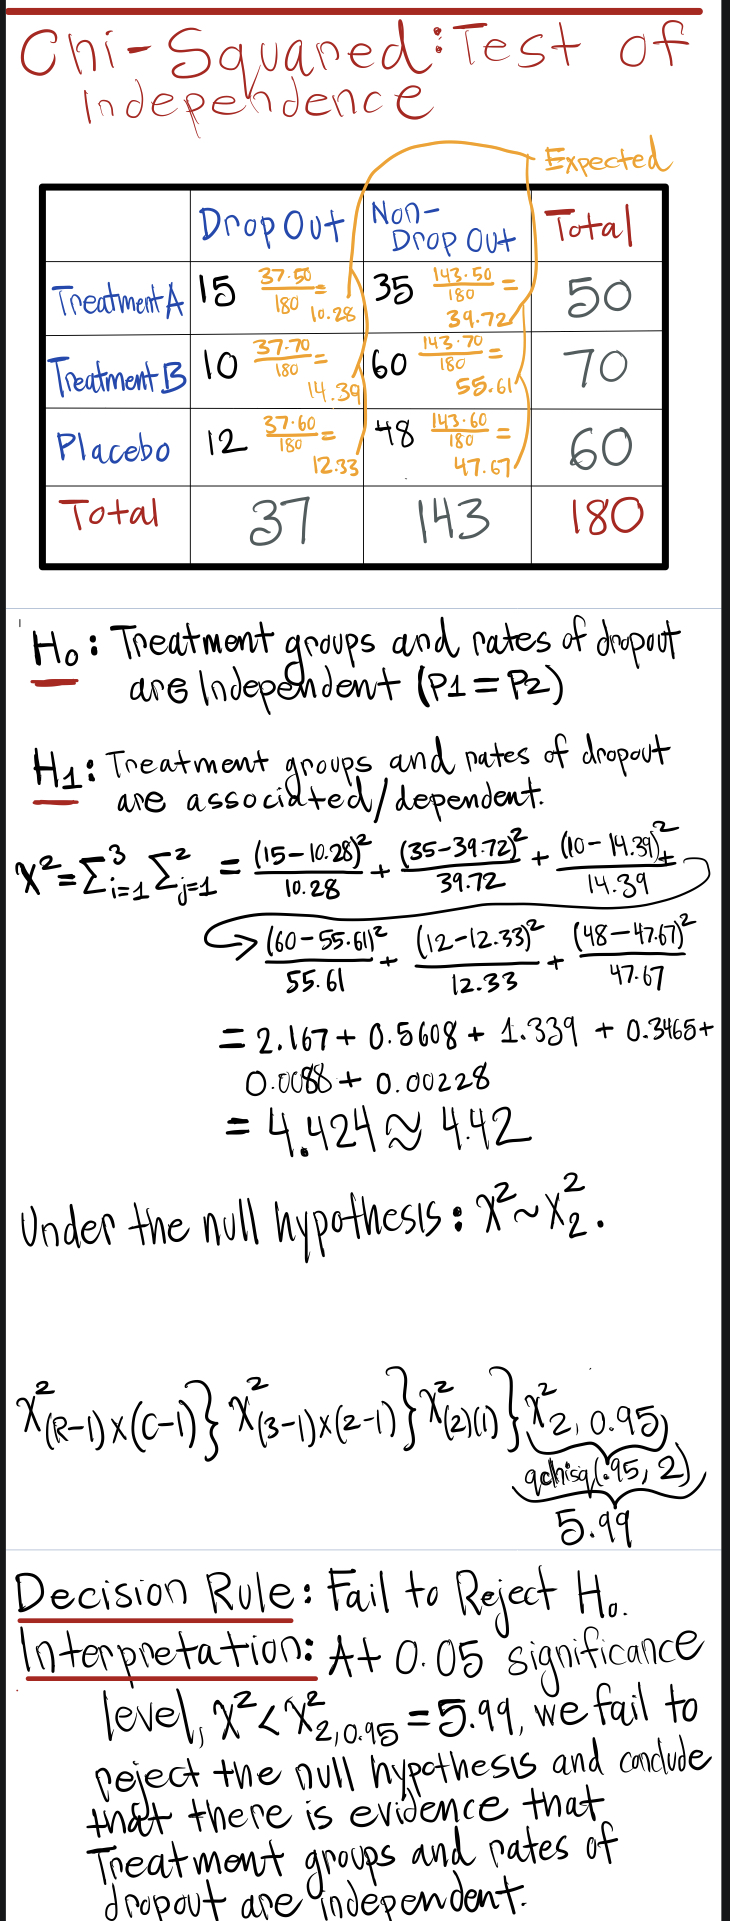 Chi-Squared: Test of
Independence
Expected
Drop Out Non-Drop Out Total
Treatment A 15 37·50/180 = 10.28 35 143·50/180 = 39.72 50
Treatment B 10 37·70/180 = 14.39 60 143·70/180 = 55.61 70
Placebo 12 37·60/180 = 12.33 48 143·60/180 = 47.67 60
Total 37 143 180
H₀: Treatment groups and rates of dropout
are Independent (P1 = P2)
H1: Treatment groups and rates of dropout
are associated/dependent.
X² = Σ³ᵢ₌₁ Σ²ⱼ₌₁ = (15-10.28)²/10.28 + (35-39.72)²/39.72 + (10-14.39)²/14.39 +
(60-55.61)²/55.61 + (12-12.33)²/12.33 + (48-47.67)²/47.67
= 2.167 + 0.5608 + 1.339 + 0.3465 +
0.0088 + 0.00228
= 4.424 ≈ 4.42
Under the null hypothesis: X² ~ X²₂.
X²(R-1)x(C-1)} X²(3-1)x(2-1)} X²(2)(1)} X²2,0.95)
qchisq(.95, 2)
5.99
Decision Rule: Fail to Reject H₀.
Interpretation: At 0.05 significance
level, X² < X²2,0.95 = 5.99, we fail to
reject the null hypothesis and conclude
that there is evidence that
Treatment groups and rates of
dropout are independent.